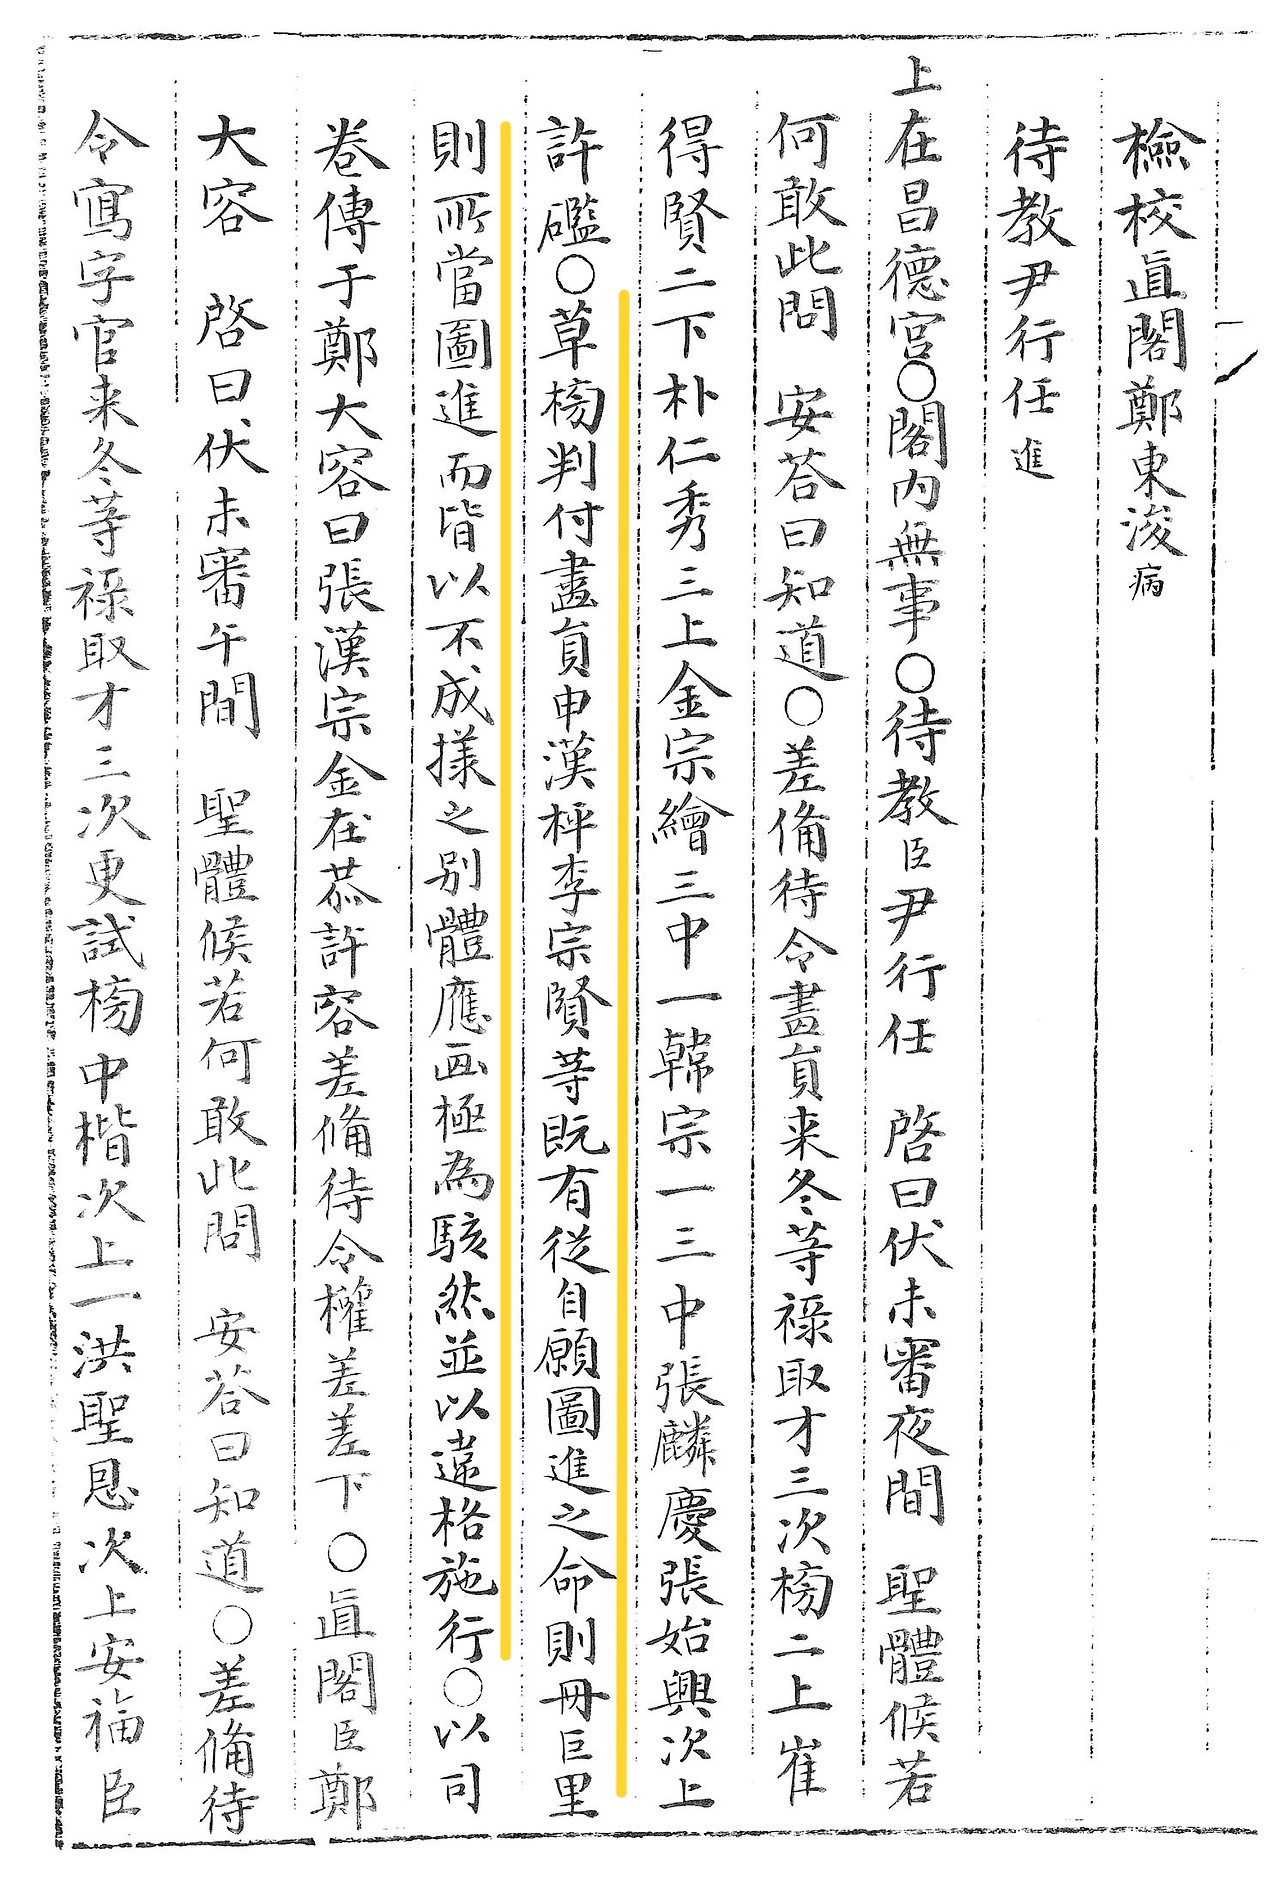 檢校直閣鄭東浚病
待教尹行任進
上在昌德宮○閣內無事○待教臣尹行任 啓曰伏未審夜間 聖體候若
何敢此問 安答曰知道○差備待令畵員来冬等祿取才三次榜二上崔
得賢二下朴仁秀三上金宗繪三中一韓宗一三中張麟慶張始興次上
許礛○草榜判付畵員申漢枰李宗賢等既有從自願圖進之命則冊巨里
則所當圖進而皆以不成㨾之別體應画極為駭然並以違格施行○以司
卷傳于鄭大容曰張漢宗金在恭許容差備待令權差差下○直閣臣鄭
大容 啓曰伏未審午間 聖體候若何敢此問 安答曰知道○差備待
令寫字官来冬等祿取才三次更試榜中楷次上一洪聖恩次上安福臣